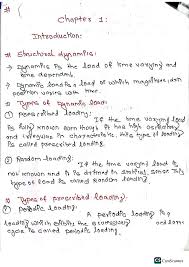 #
Chapter 1:
Introduction:
# Structural dynamics:
→ Dynamic is the load of time varying and
time dependent.
→ Dynamic load a load of which magnitude, and
position varies with time.
# Types of dynamic load:
1) Prescribed loading: If the time varying load
is fully known even though it has high oscillatory
and irregular in character, this type of loading
is called prescribed loading.
2) Random loading: If the time varying load is
not known and is defined in statical, sense this
type of load is called random loading
# Types of prescribed loading:
1) Periodic loading: A periodic loading is a
loading which exhibits the and same
cycle is called periodic loading.
CS CamScanner